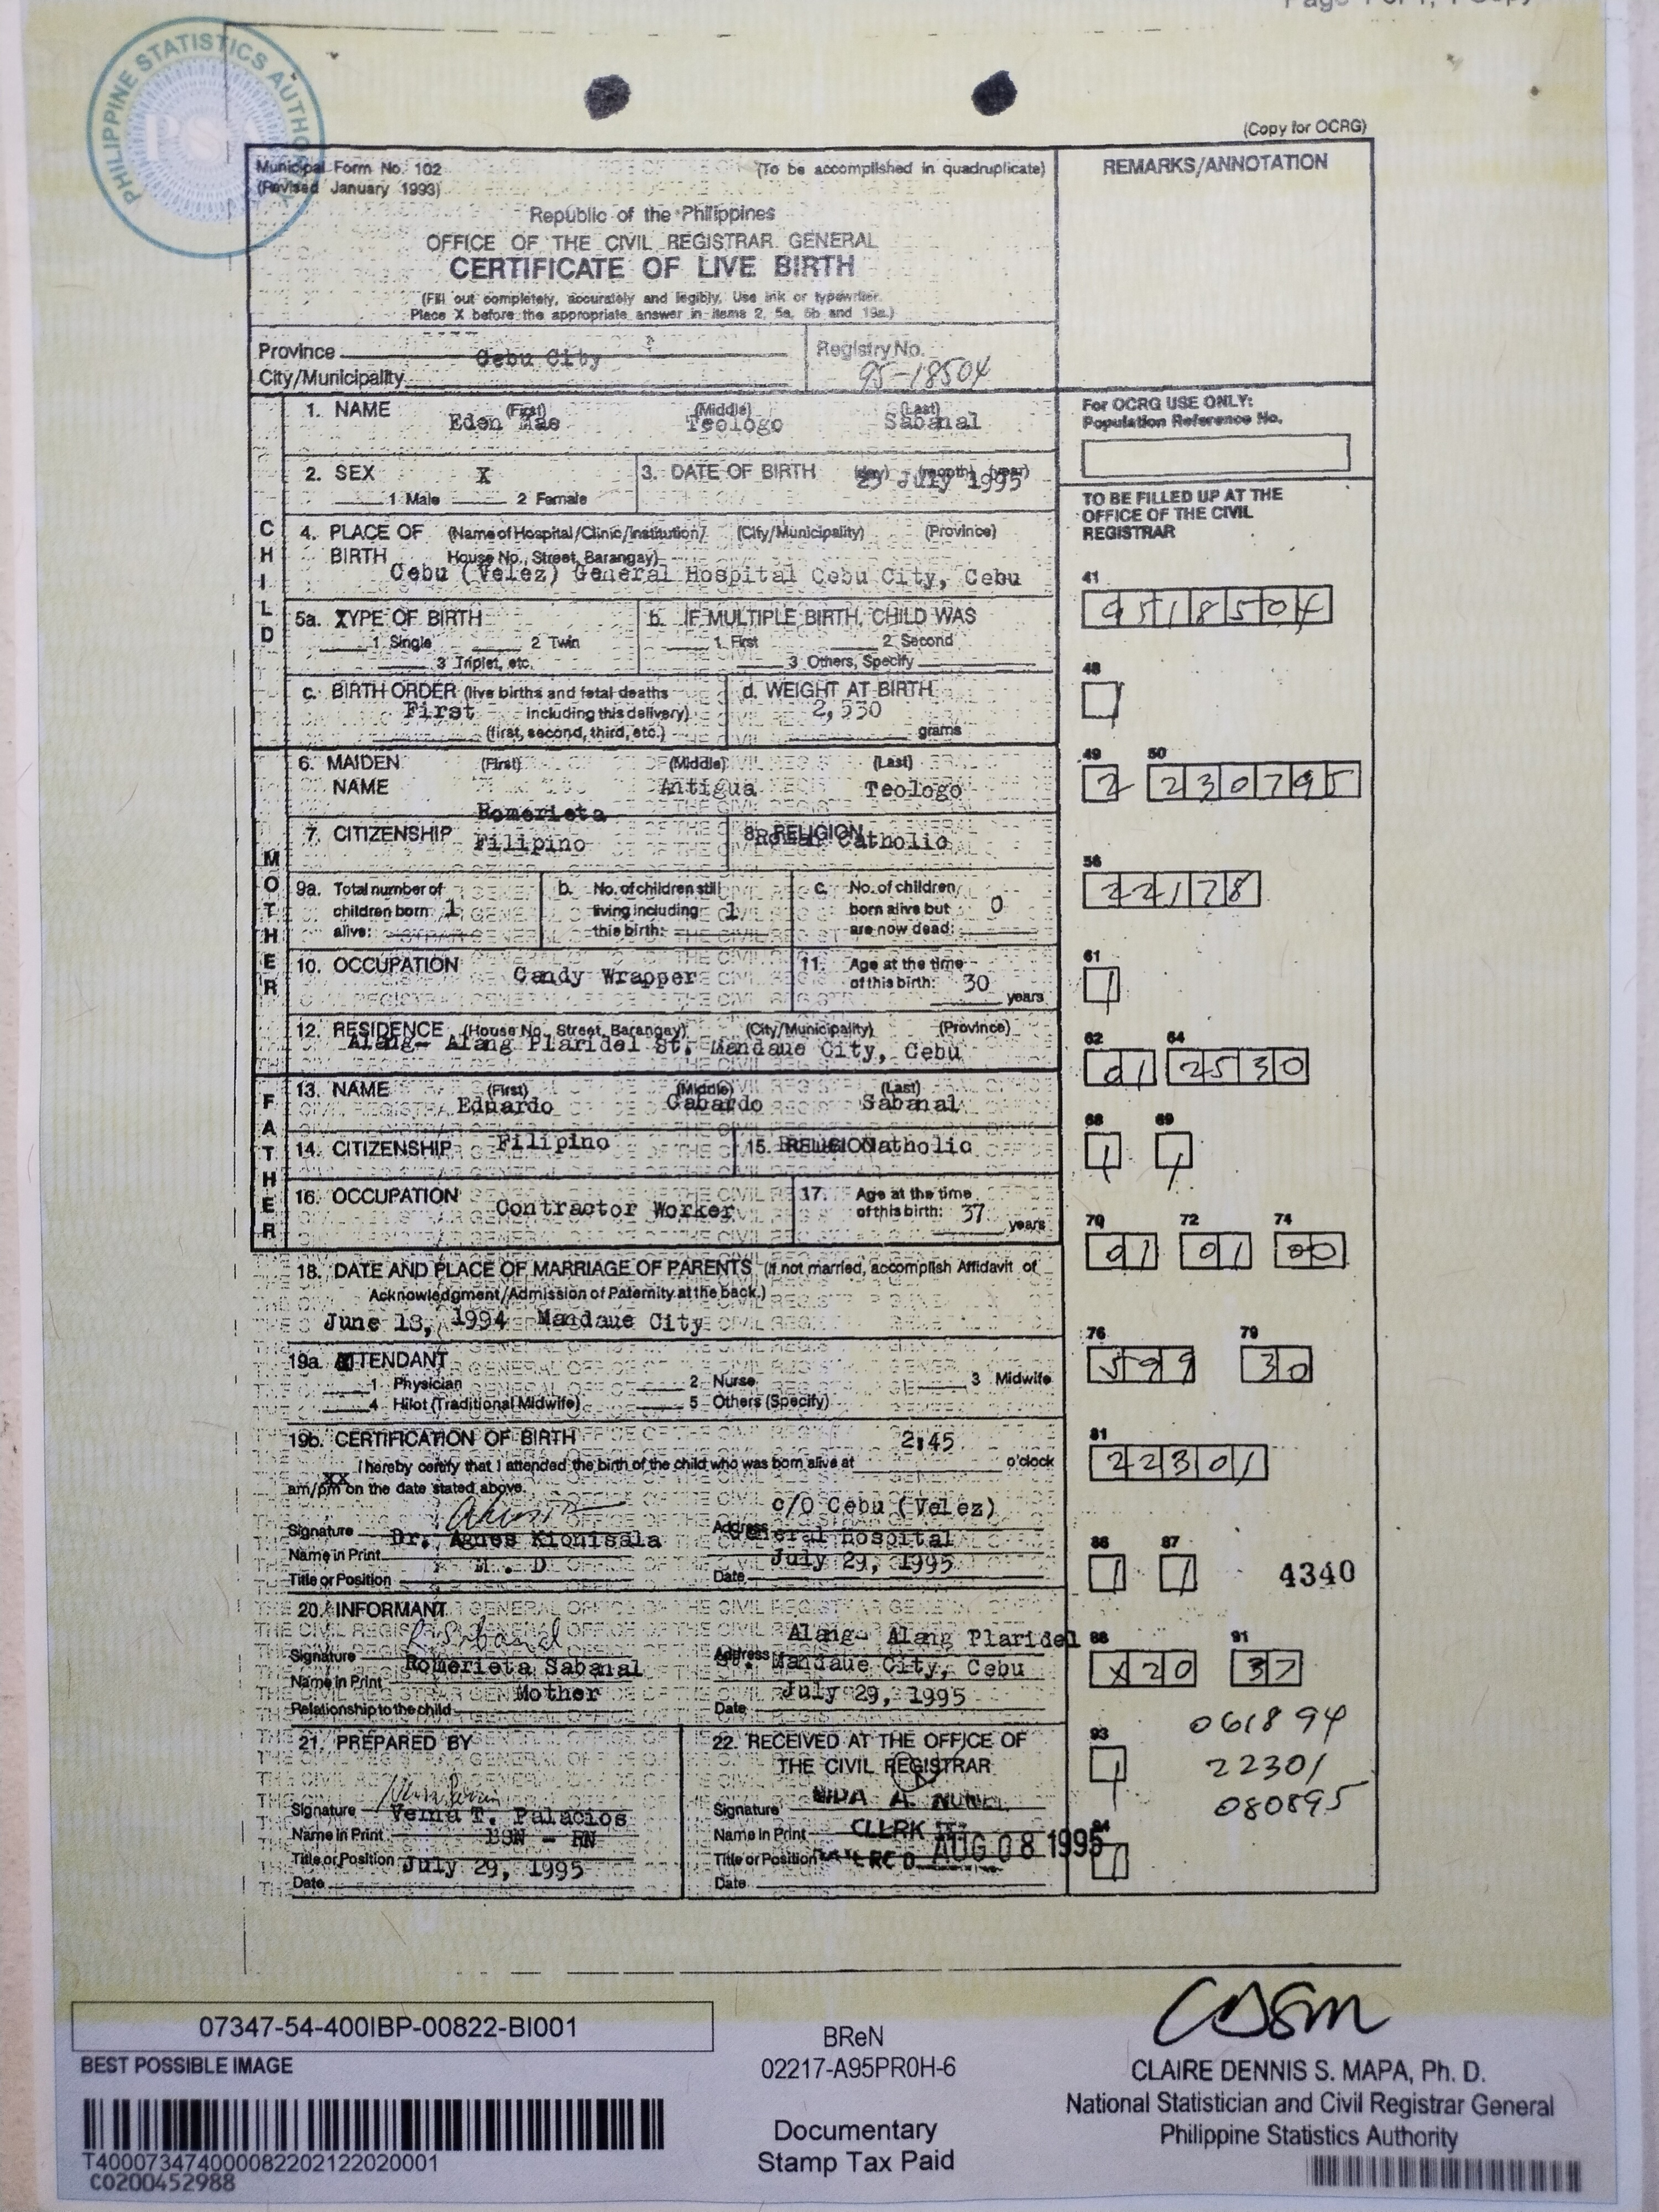 PHILIPPINE STATISTICS AUTHORITY
PSA
(Copy for OCRG)
Municipal Form No. 102
(To be accomplished in quadruplicate)
REMARKS/ANNOTATION
(Revised January 1993)
Republic of the Philippines
OFFICE OF THE CIVIL REGISTRAR GENERAL
CERTIFICATE OF LIVE BIRTH
(Fill out completely, accurately and legibly. Use ink or typewriter.
Place X before the appropriate answer in items 2, 5a, 5b and 19a.)
Province
Cebu City
Registry No.
City/Municipality
95-18504
1. NAME (First) (Middle) (Last)
Eden Mae Teologo Sabanal
For OCRG USE ONLY:
Population Reference No.
2. SEX X
3. DATE OF BIRTH (day) (month) (year)
July 1995
1 Male 2 Female
TO BE FILLED UP AT THE
OFFICE OF THE CIVIL
REGISTRAR
CHILD
4. PLACE OF (Name of Hospital/Clinic/Institution/ (City/Municipality) (Province)
BIRTH House No., Street, Barangay)
Cebu (Velez) General Hospital Cebu City, Cebu
41
9518504
5a. TYPE OF BIRTH
X
b. IF MULTIPLE BIRTH, CHILD WAS
1 Single 2 Twin
1 First 2 Second
3 Triplet, etc.
3 Others, Specify
48
1
c. BIRTH ORDER (live births and fetal deaths
d. WEIGHT AT BIRTH
First including this delivery)
2,530
(first, second, third, etc.)
grams
49 50
2 230795
MOTHER
6. MAIDEN (First) (Middle) (Last)
NAME Antigua Teologo
Romerieta
7. CITIZENSHIP Filipino
8. RELIGION Roman Catholic
56
22178
9a. Total number of
children born 1
alive:
b. No. of children still
living including 1
this birth:
c. No. of children
born alive but 0
are now dead:
10. OCCUPATION Candy Wrapper
11. Age at the time
of this birth: 30
years
61
1
12. RESIDENCE (House No., Street, Barangay) (City/Municipality) (Province)
Alang- Alang Plaridel St. Mandaue City, Cebu
62 64
01 2530
FATHER
13. NAME (First) (Middle) (Last)
Eduardo Gabardo Sabanal
68 69
1 1
14. CITIZENSHIP Filipino
15. RELIGION Catholic
16. OCCUPATION Contractor Worker
17. Age at the time
of this birth: 37
years
70 72 74
01 01 00
18. DATE AND PLACE OF MARRIAGE OF PARENTS (If not married, accomplish Affidavit of
Acknowledgment/Admission of Paternity at the back.)
June 18, 1994 Mandaue City
76 79
599 30
19a. ATTENDANT
X
1 Physician 2 Nurse 3 Midwife
4 Hilot (Traditional Midwife) 5 Others (Specify)
19b. CERTIFICATION OF BIRTH 2:45
I hereby certify that I attended the birth of the child who was born alive at o'clock
xx
am/pm on the date stated above.
81
22301
Signature
Name in Print Dr. Agnes Kionisala
Title or Position M . D
c/O Cebu (Velez)
Address General Hospital
July 29, 1995
Date
86 87
1 1
4340
20. INFORMANT
Signature RSabanal
Name in Print Romerieta Sabanal
Mother
Relationship to the child
Alang- Alang Plaridel
Address St. Mandaue City, Cebu
July 29, 1995
Date
88 91
x20 37
061894
22301
080895
93
1
21. PREPARED BY
Signature
Verna T. Palacios
Name in Print BSN - RN
Title or Position July 29, 1995
Date
22. RECEIVED AT THE OFFICE OF
THE CIVIL REGISTRAR
Signature
Name in Print CLERK
Title or Position AUG 08 1995
Date
94
1
07347-54-400IBP-00822-BI001
BEST POSSIBLE IMAGE
T400073474000082202122020001
C0200452988
BReN
02217-A95PR0H-6
Documentary
Stamp Tax Paid
CLAIRE DENNIS S. MAPA, Ph. D.
National Statistician and Civil Registrar General
Philippine Statistics Authority